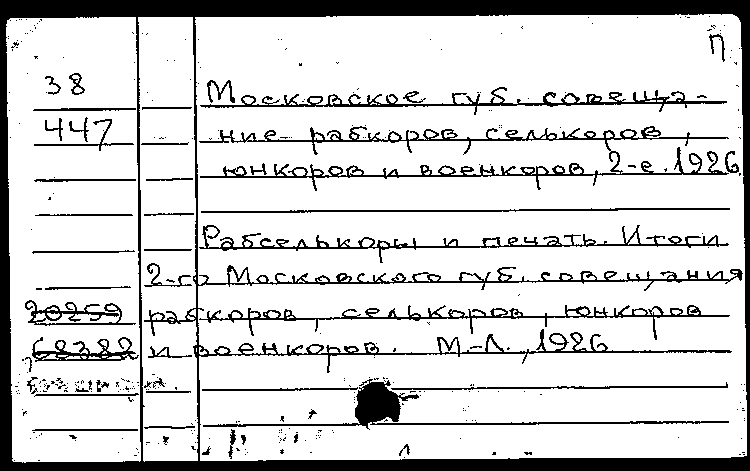 П
38
Московское губ. совеща-
447
ние рабкоров, селькоров,
юнкоров и военкоров, 2-е. 1926
Рабселькоры и печать. Итоги
2-го Московского губ. совещания
20259 рабкоров, селькоров, юнкоров
68382 и военкоров. М-Л., 1926